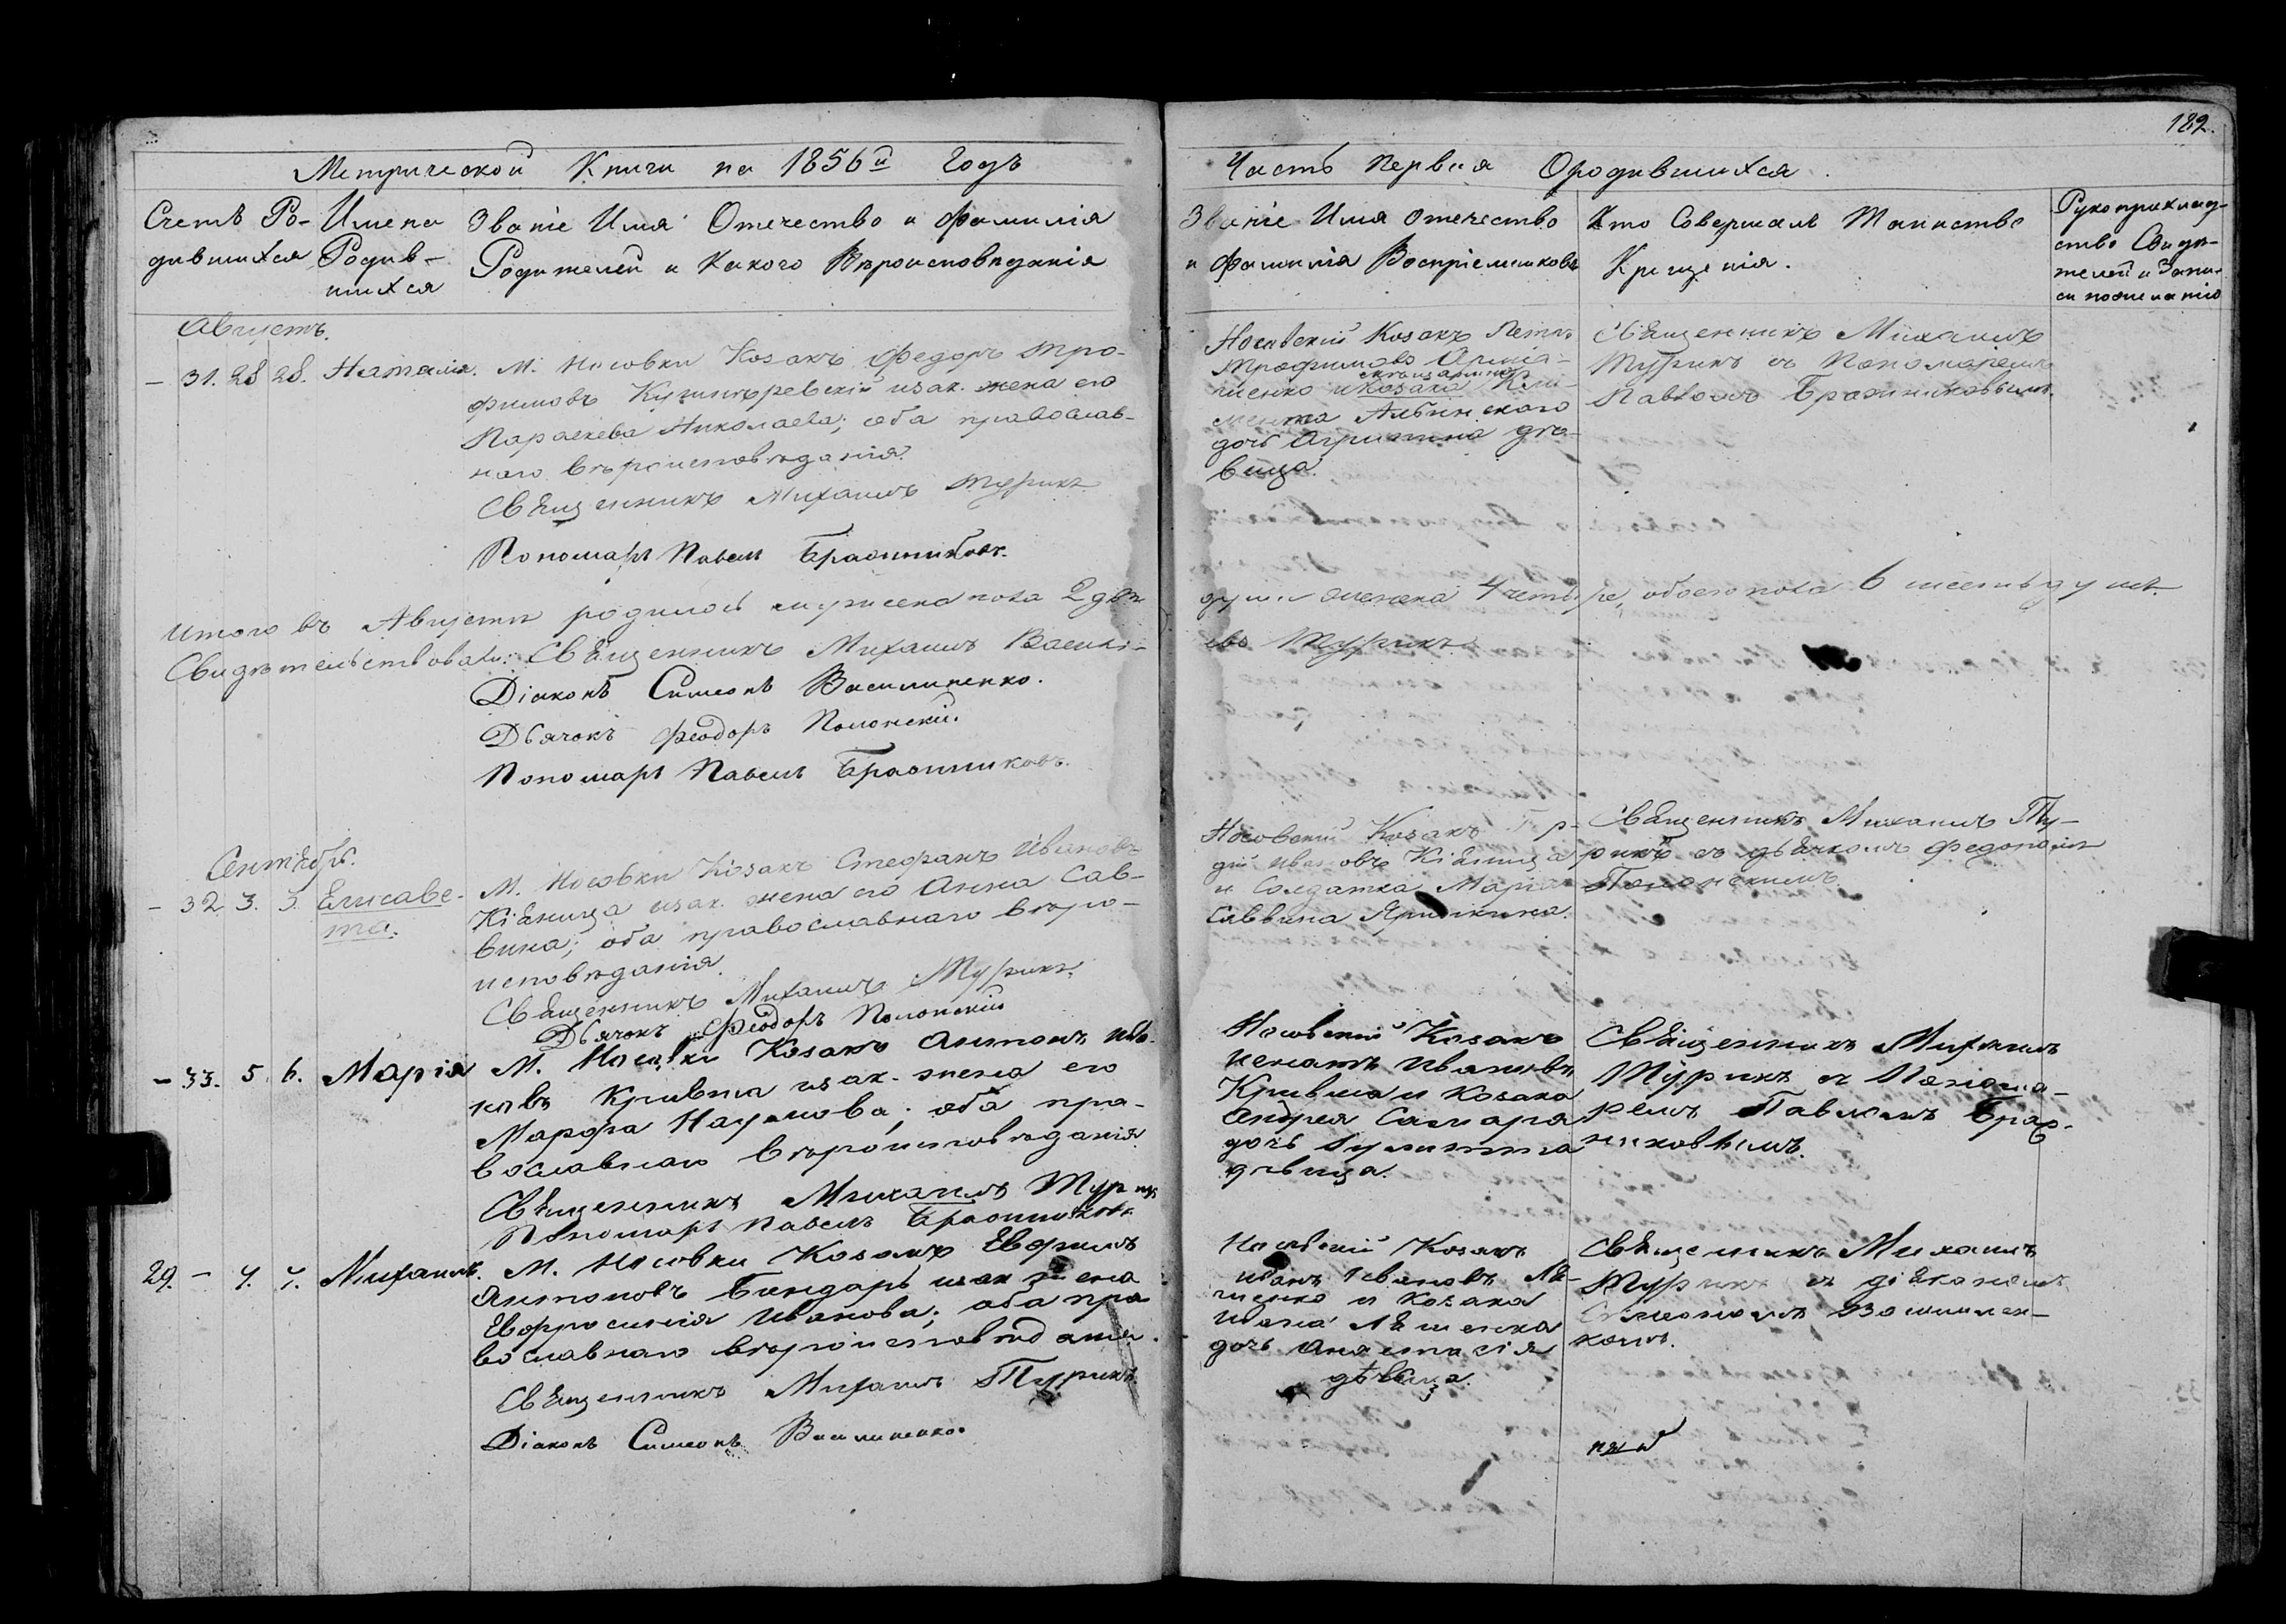 182.
Метрической Книги на 1856й Годъ
Часть Первая Ородившихся.
Счетъ Ро-
дившихся
Имена
Родив-
шихся
Званіе Имя Отечество и Фамилія
Родителей и Какого Вѣроисповѣданія
Званіе Имя Отечество
и Фамилія Воспріемниковъ
Кто Совершалъ Таинство
Крещенія.
Рукоприклад-
ство Свидѣ-
телей и Запи-
си по желанію
Августъ.
– 31. 28 28. Наталія.
М. Носовки Козакъ Федоръ Тро-
фимовъ зак. жена его
Параскева Николаева; оба православ-
наго вѣроисповѣданія.
Священникъ Михаилъ Турикъ
Пономарь Павелъ Бражниковъ.
Носовскій Козакъ Петръ
Трофимовъ
ченко и Козака Кли-
мента
дочь Агрипина дѣ-
вица.
Священникъ Михаилъ
Турикъ съ Пономаремъ
Павломъ Бражниковымъ.
Итого въ Августѣ родилось мужеска пола 2 двѣ
души женска 4 четыре, обоего пола 6 шесть душъ.
Свидѣтельствовали: Священникъ Михаилъ Василі-
евъ Турикъ
Діаконъ Симеонъ Василиненко.
Дьячокъ Феодоръ Полонскій.
Пономарь Павелъ Бражниковъ.
Сентябрь.
– 32. 3. 3. Елисаве-
та.
М. Носовки Козакъ Стефанъ Ивановъ
Кіяница зак. жена его Анна Сав-
вина; оба православнаго вѣро-
исповѣданія.
Священникъ Михаилъ Турикъ.
Дьячокъ Феодоръ Полонскій
Носовскій Козакъ
Ивановъ Кіяница
и Солдатка Марія
Саввина
Священникъ Михаилъ Ту-
рикъ съ дьячкомъ Федоромъ
Полонскимъ.
– 33. 5. 6. Марія
М. Носовки Козакъ Антонъ Ива-
новъ Кривша зак. жена его
Марфа Наумова; оба пра-
вославнаго вѣроисповѣданія.
Священникъ Михаилъ Турикъ
Пономарь Павелъ Бражниковъ
Носовскій Козакъ
Ивановъ
Кривша и Козака
Андрея
дочь
дѣвица.
Священникъ Михаилъ
Турикъ съ Понома-
ремъ Павломъ Браж-
никовымъ.
29. – 7. 7. Михаилъ.
М. Носовки Козакъ Евфимъ
Антоновъ Бондарь зак жена
Евфросинія Иванова; оба пра
вославнаго вѣроисповѣданія.
Священникъ Михаилъ Турикъ.
Діаконъ Симеонъ Василиненко.
Носовскій Козакъ
Иванъ Ивановъ Ля-
шенко и Козака
Ивана Ляшенка
дочь Анастасія
дѣвица.
Священникъ Михаилъ
Турикъ съ діакономъ
Симеономъ Василинен-
комъ.